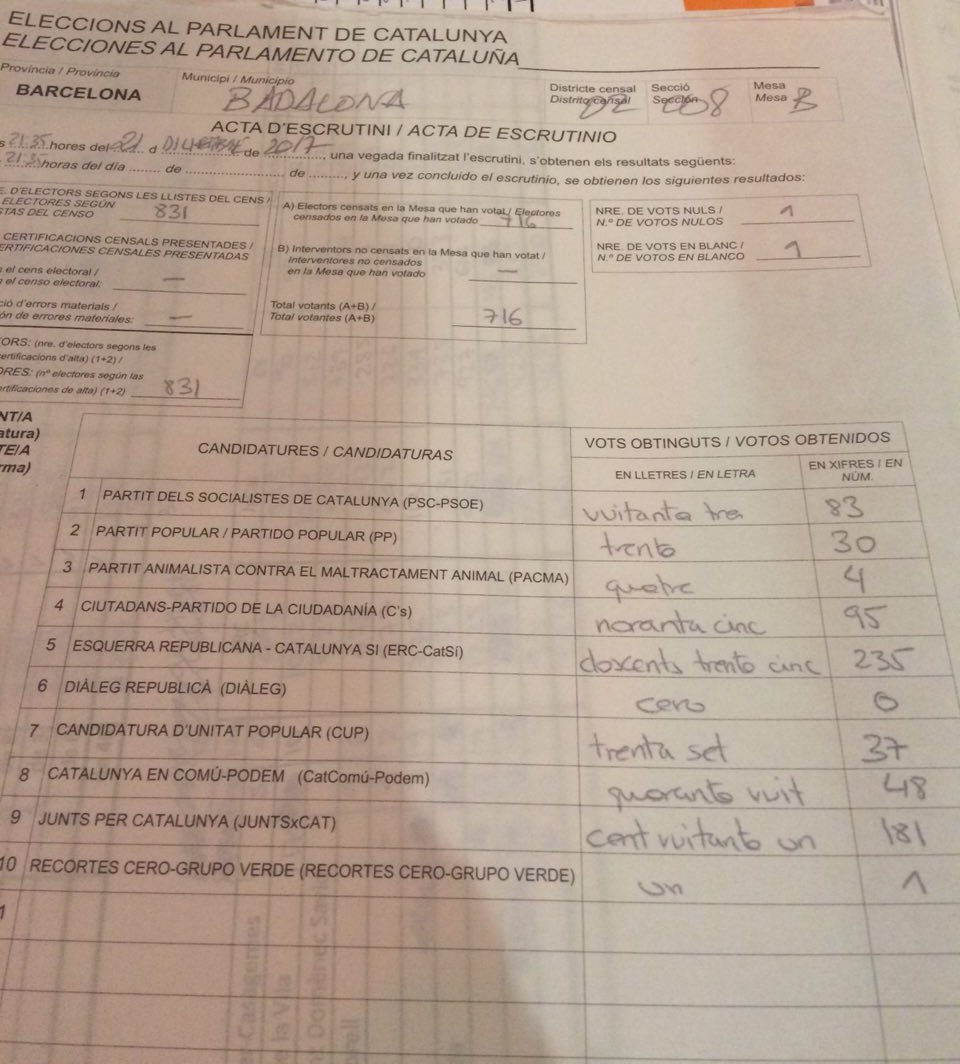 ELECCIONS AL PARLAMENT DE CATALUNYA
ELECCIONES AL PARLAMENTO DE CATALUÑA
Província / Provincia
BARCELONA
Municipi / Municipio
BADALONA
Districte censal
Distrito censal
02
Secció
Sección
008
Mesa
Mesa
B
ACTA D'ESCRUTINI / ACTA DE ESCRUTINIO
s 21:35 hores del 21 d DICIEMBRE de 2017, una vegada finalitzat l'escrutini, s'obtenen els resultats següents:
21:35 horas del día ........ de ........................ de ........, y una vez concluido el escrutinio, se obtienen los siguientes resultados:
E. D'ELECTORS SEGONS LES LLISTES DEL CENS /
ELECTORES SEGÚN
STAS DEL CENSO 831
CERTIFICACIONS CENSALS PRESENTADES /
ERTIFICACIONES CENSALES PRESENTADAS
el cens electoral /
el censo electoral: —
ció d'errors materials /
ón de errores materiales: —
ORS: (nre. d'electors segons les
ertificacions d'alta) (1+2) /
ORES: (nº electores según las
rtificaciones de alta) (1+2) 831
A) Electors censats en la Mesa que han votat / Electores
censados en la Mesa que han votado 716
B) Interventors no censats en la Mesa que han votat /
Interventores no censados
en la Mesa que han votado —
Total votants (A+B) /
Total votantes (A+B) 716
NRE. DE VOTS NULS /
N.º DE VOTOS NULOS 1
NRE. DE VOTS EN BLANC /
N.º DE VOTOS EN BLANCO 1
NT/A
atura)
TE/A
rma)
CANDIDATURES / CANDIDATURAS
VOTS OBTINGUTS / VOTOS OBTENIDOS
EN LLETRES / EN LETRA
EN XIFRES / EN
NÚM.
1 PARTIT DELS SOCIALISTES DE CATALUNYA (PSC-PSOE) vuitanta tres 83
2 PARTIT POPULAR / PARTIDO POPULAR (PP) trenta 30
3 PARTIT ANIMALISTA CONTRA EL MALTRACTAMENT ANIMAL (PACMA) quatre 4
4 CIUTADANS-PARTIDO DE LA CIUDADANÍA (C's) noranta cinc 95
5 ESQUERRA REPUBLICANA - CATALUNYA SI (ERC-CatSí) doscents trenta cinc 235
6 DIÀLEG REPUBLICÀ (DIÀLEG) cero 0
7 CANDIDATURA D'UNITAT POPULAR (CUP) trenta set 37
8 CATALUNYA EN COMÚ-PODEM (CatComú-Podem) quaranta vuit 48
9 JUNTS PER CATALUNYA (JUNTSxCAT) cent vuitanta un 181
10 RECORTES CERO-GRUPO VERDE (RECORTES CERO-GRUPO VERDE) un 1
1